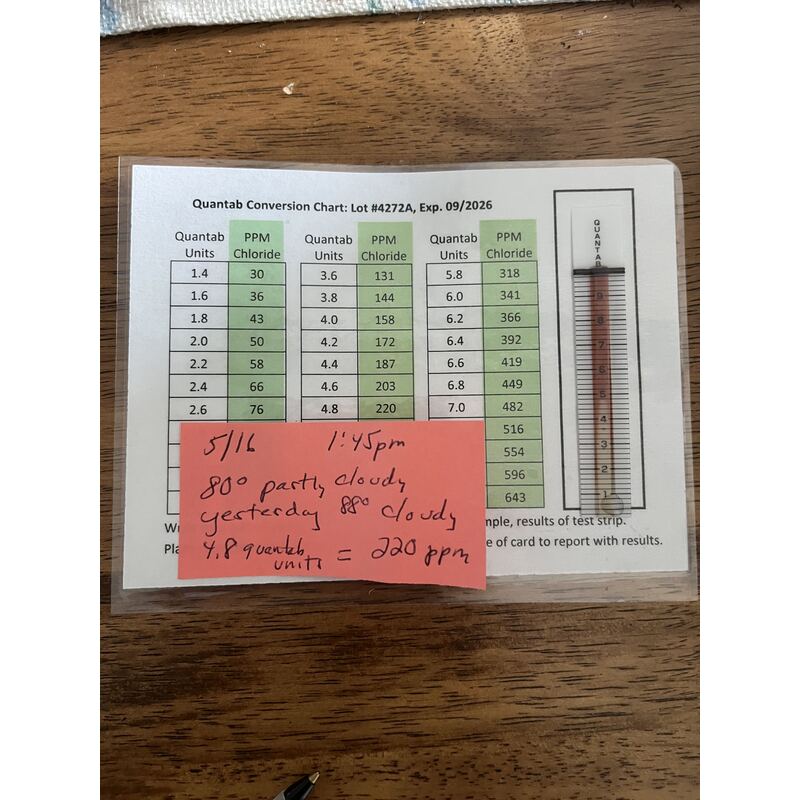 Quantab Conversion Chart: Lot #4272A, Exp. 09/2026
Quantab Units PPM Chloride Quantab Units PPM Chloride Quantab Units PPM Chloride
1.4 30 3.6 131 5.8 318
1.6 36 3.8 144 6.0 341
1.8 43 4.0 158 6.2 366
2.0 50 4.2 172 6.4 392
2.2 58 4.4 187 6.6 419
2.4 66 4.6 203 6.8 449
2.6 76 4.8 220 7.0 482
516
554
596
643
results of test strip.
of card to report with results.
5/16 1:45pm
80° partly cloudy
yesterday 88° cloudy
4.8 quantab units = 220 ppm
QUANTAB
9
8
7
6
5
4
3
2
1